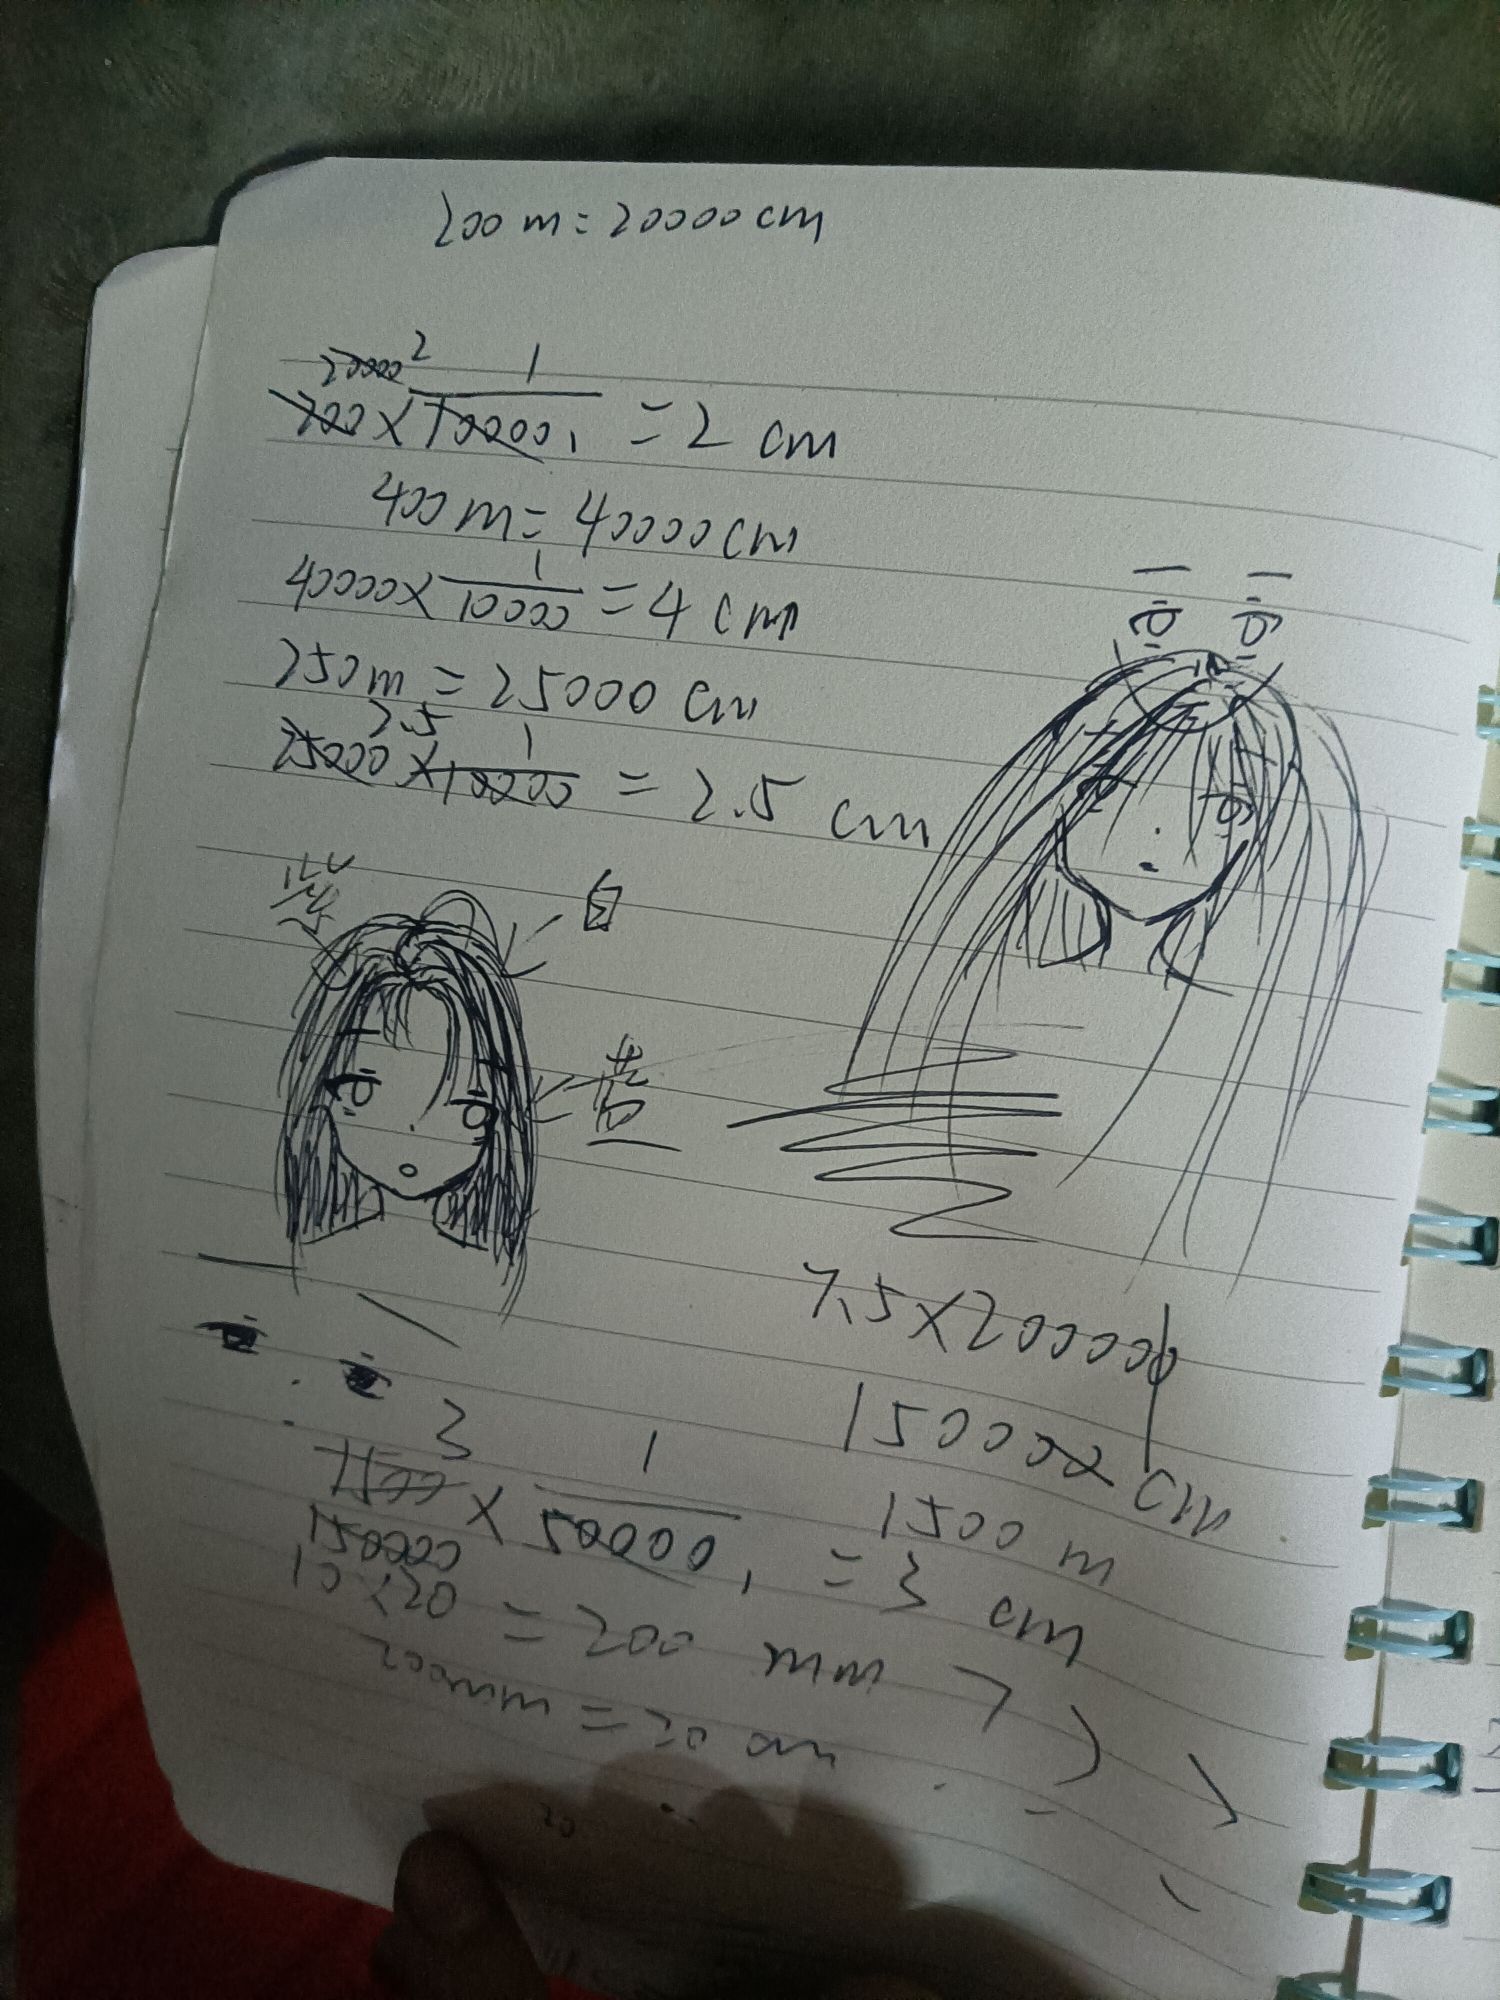 200m=20000cm
20000 2 1
200×10000 1 =2 cm
400m=40000cm
1
40000×10000=4 cm
250m=25000 cm
2.5 1
25000×10000=2.5 cm
白
黄
7.5×200000
150000 cm
1500 m
3 1
1500 × 50000 1 =3 cm
150000
10×20=200 mm
200mm=20 cm
20